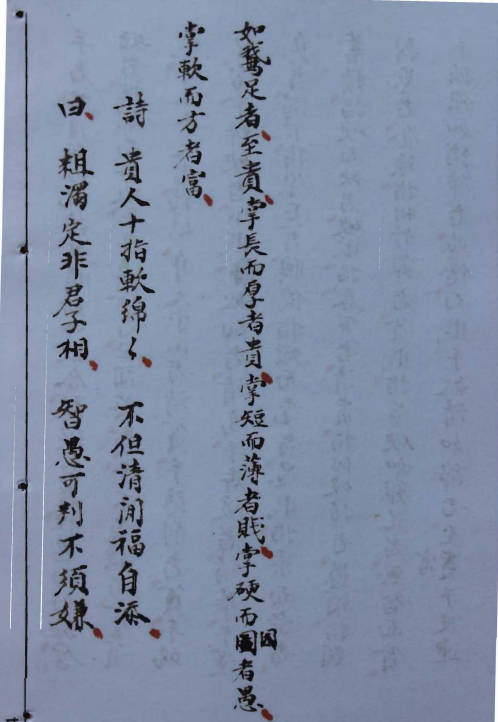 如鵞足者、至貴、掌長而厚者貴、掌短而薄者賎、掌硬而圓者愚、
掌軟而方者富、
詩 貴人十指軟綿々、 不但清閑福自添、
曰、 粗濁定非君子相、 智愚可判不須嫌、